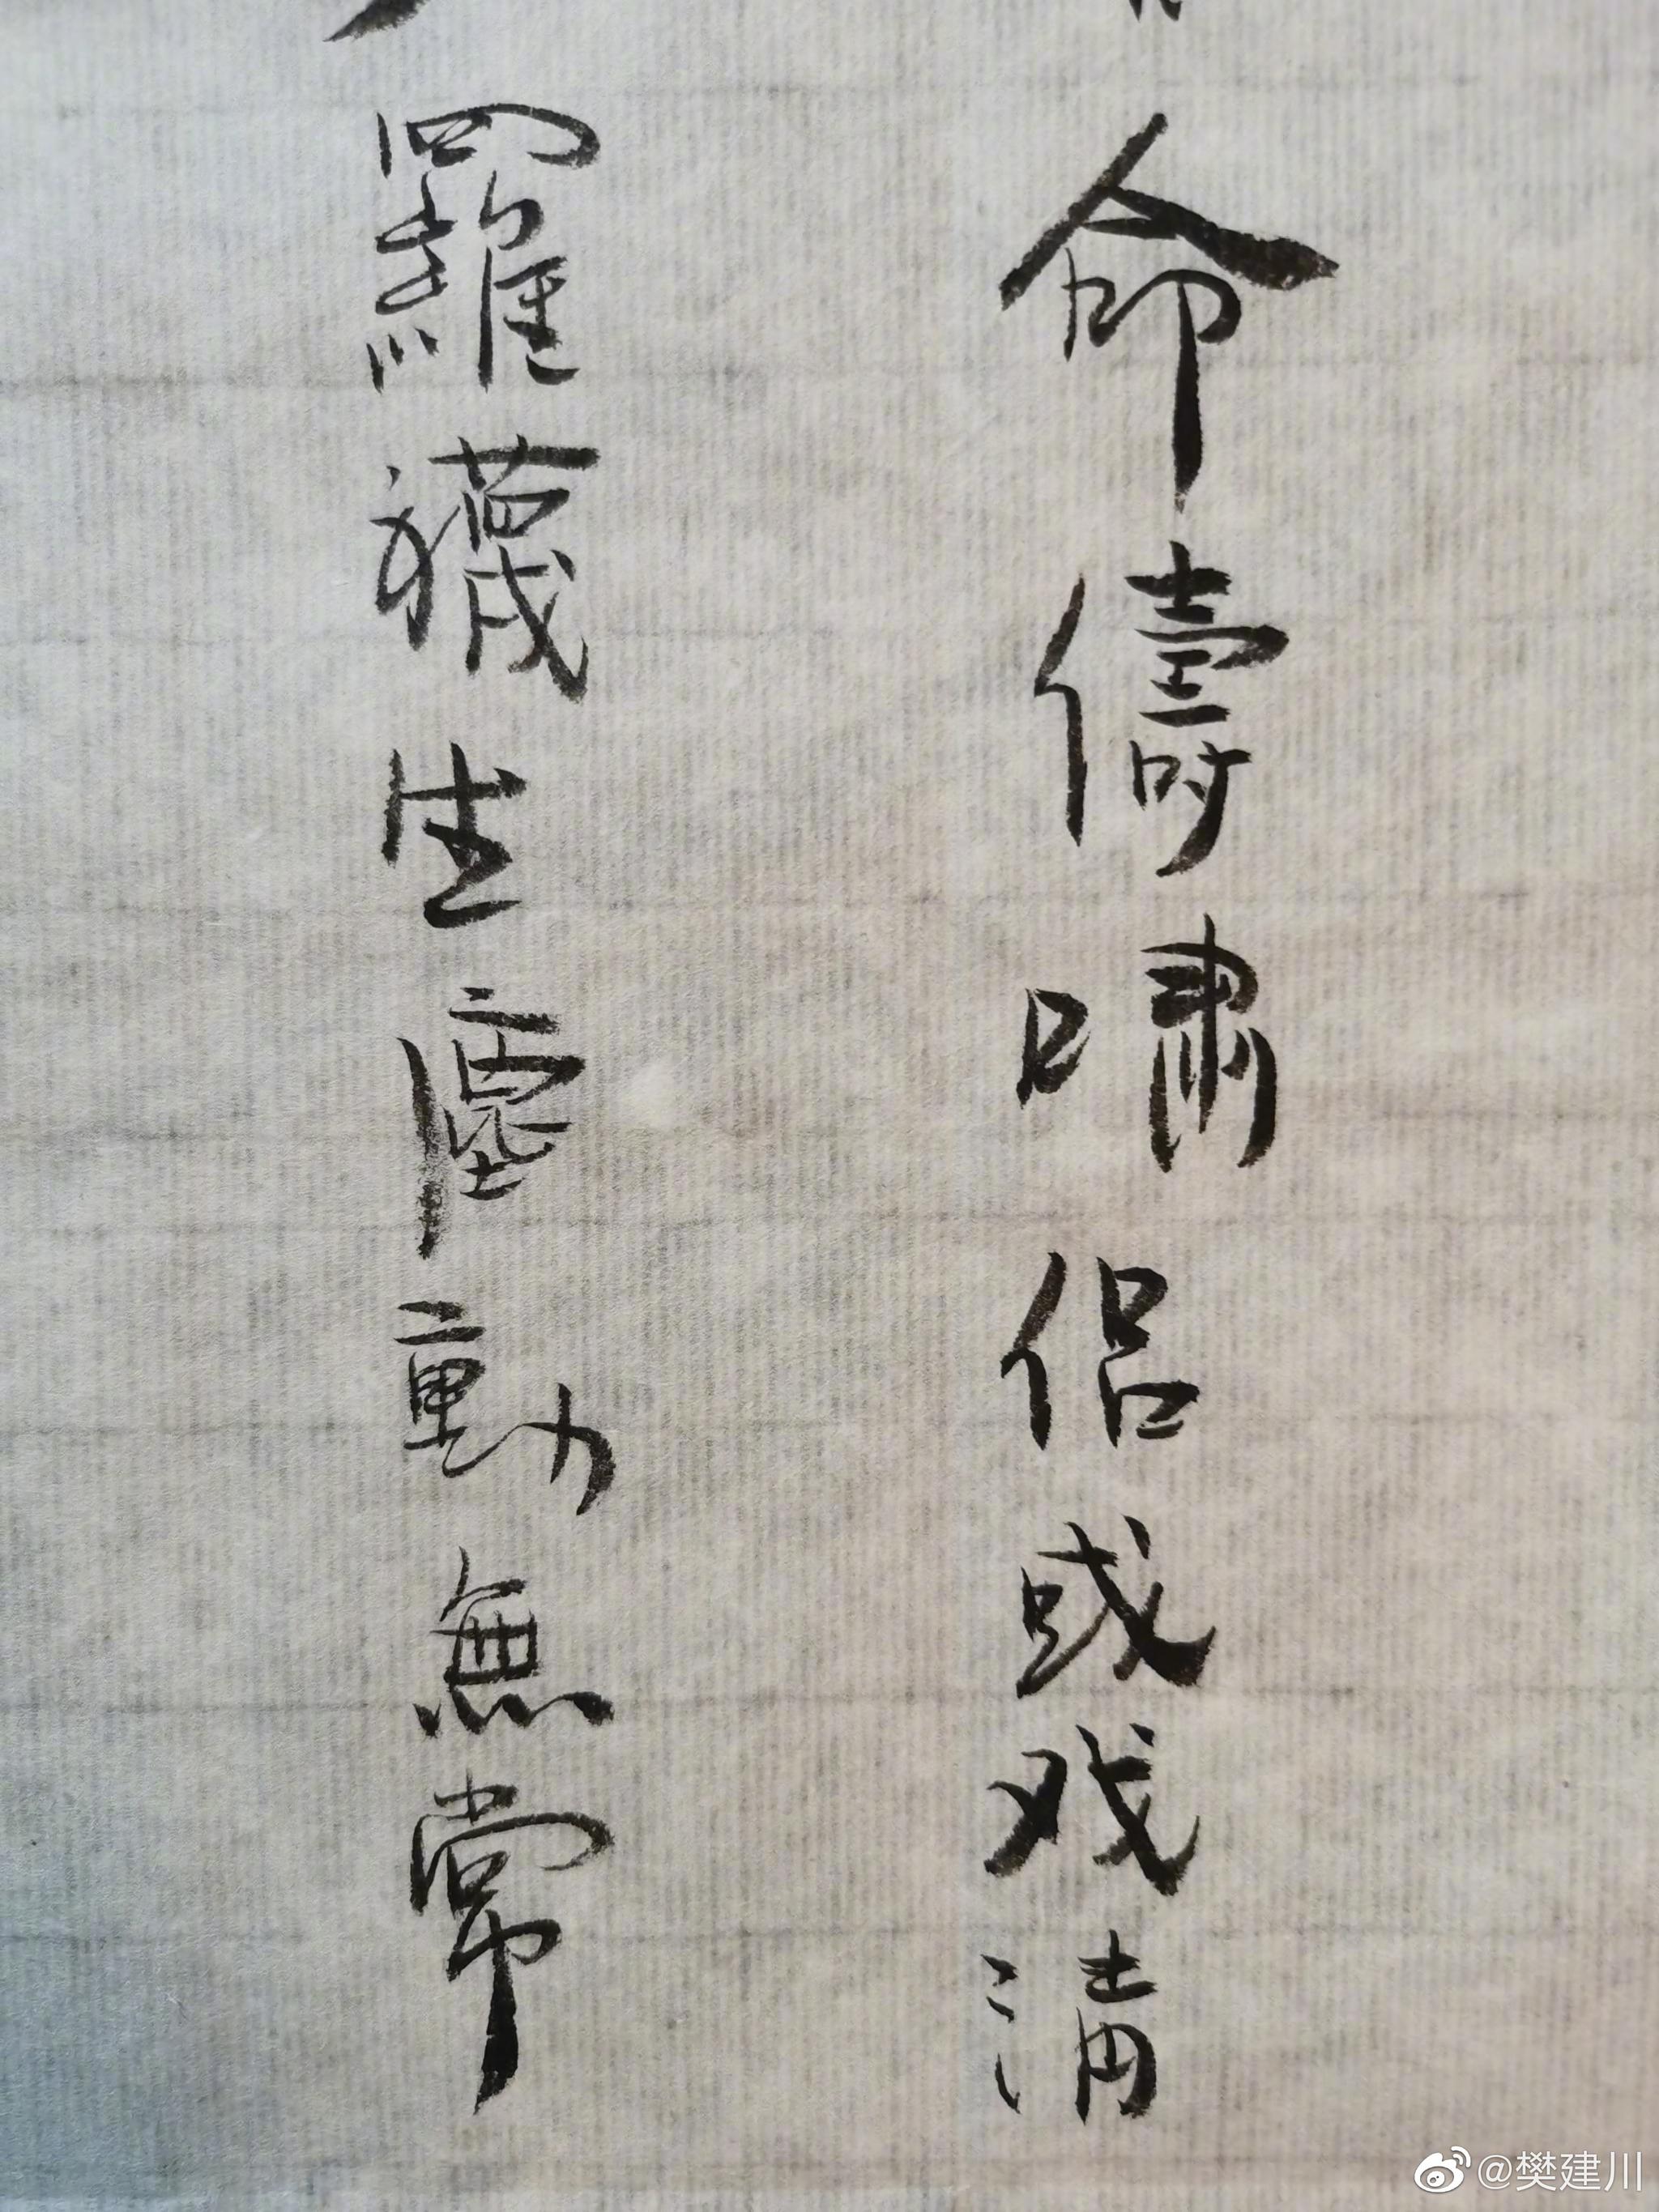 命儔嘯侣或戏清
羅襪生塵動無常
@樊建川